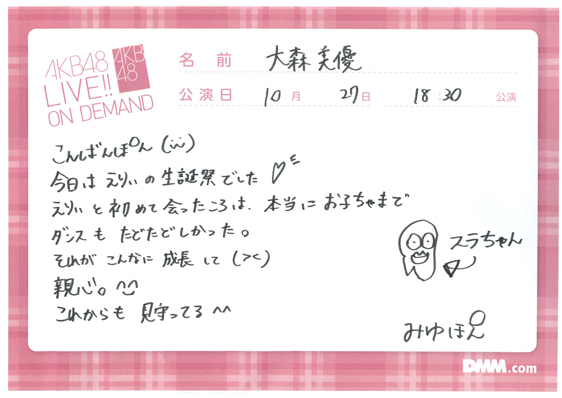 AKB48
LIVE!!
ON DEMAND
AKB
48
名前 大森美優
公演日 10月 27日 18:30 公演
こんばんぽん (¨)
今日は えりぃの生誕祭でした
えりぃと初めて会ったころは、本当にお子ちゃまで
ダンスも たどたどしかった。
それが こんなに 成長 して (><)
親心。^^
これからも 見守ってる ^^
スラちゃん
みゆぽん
DMM.com